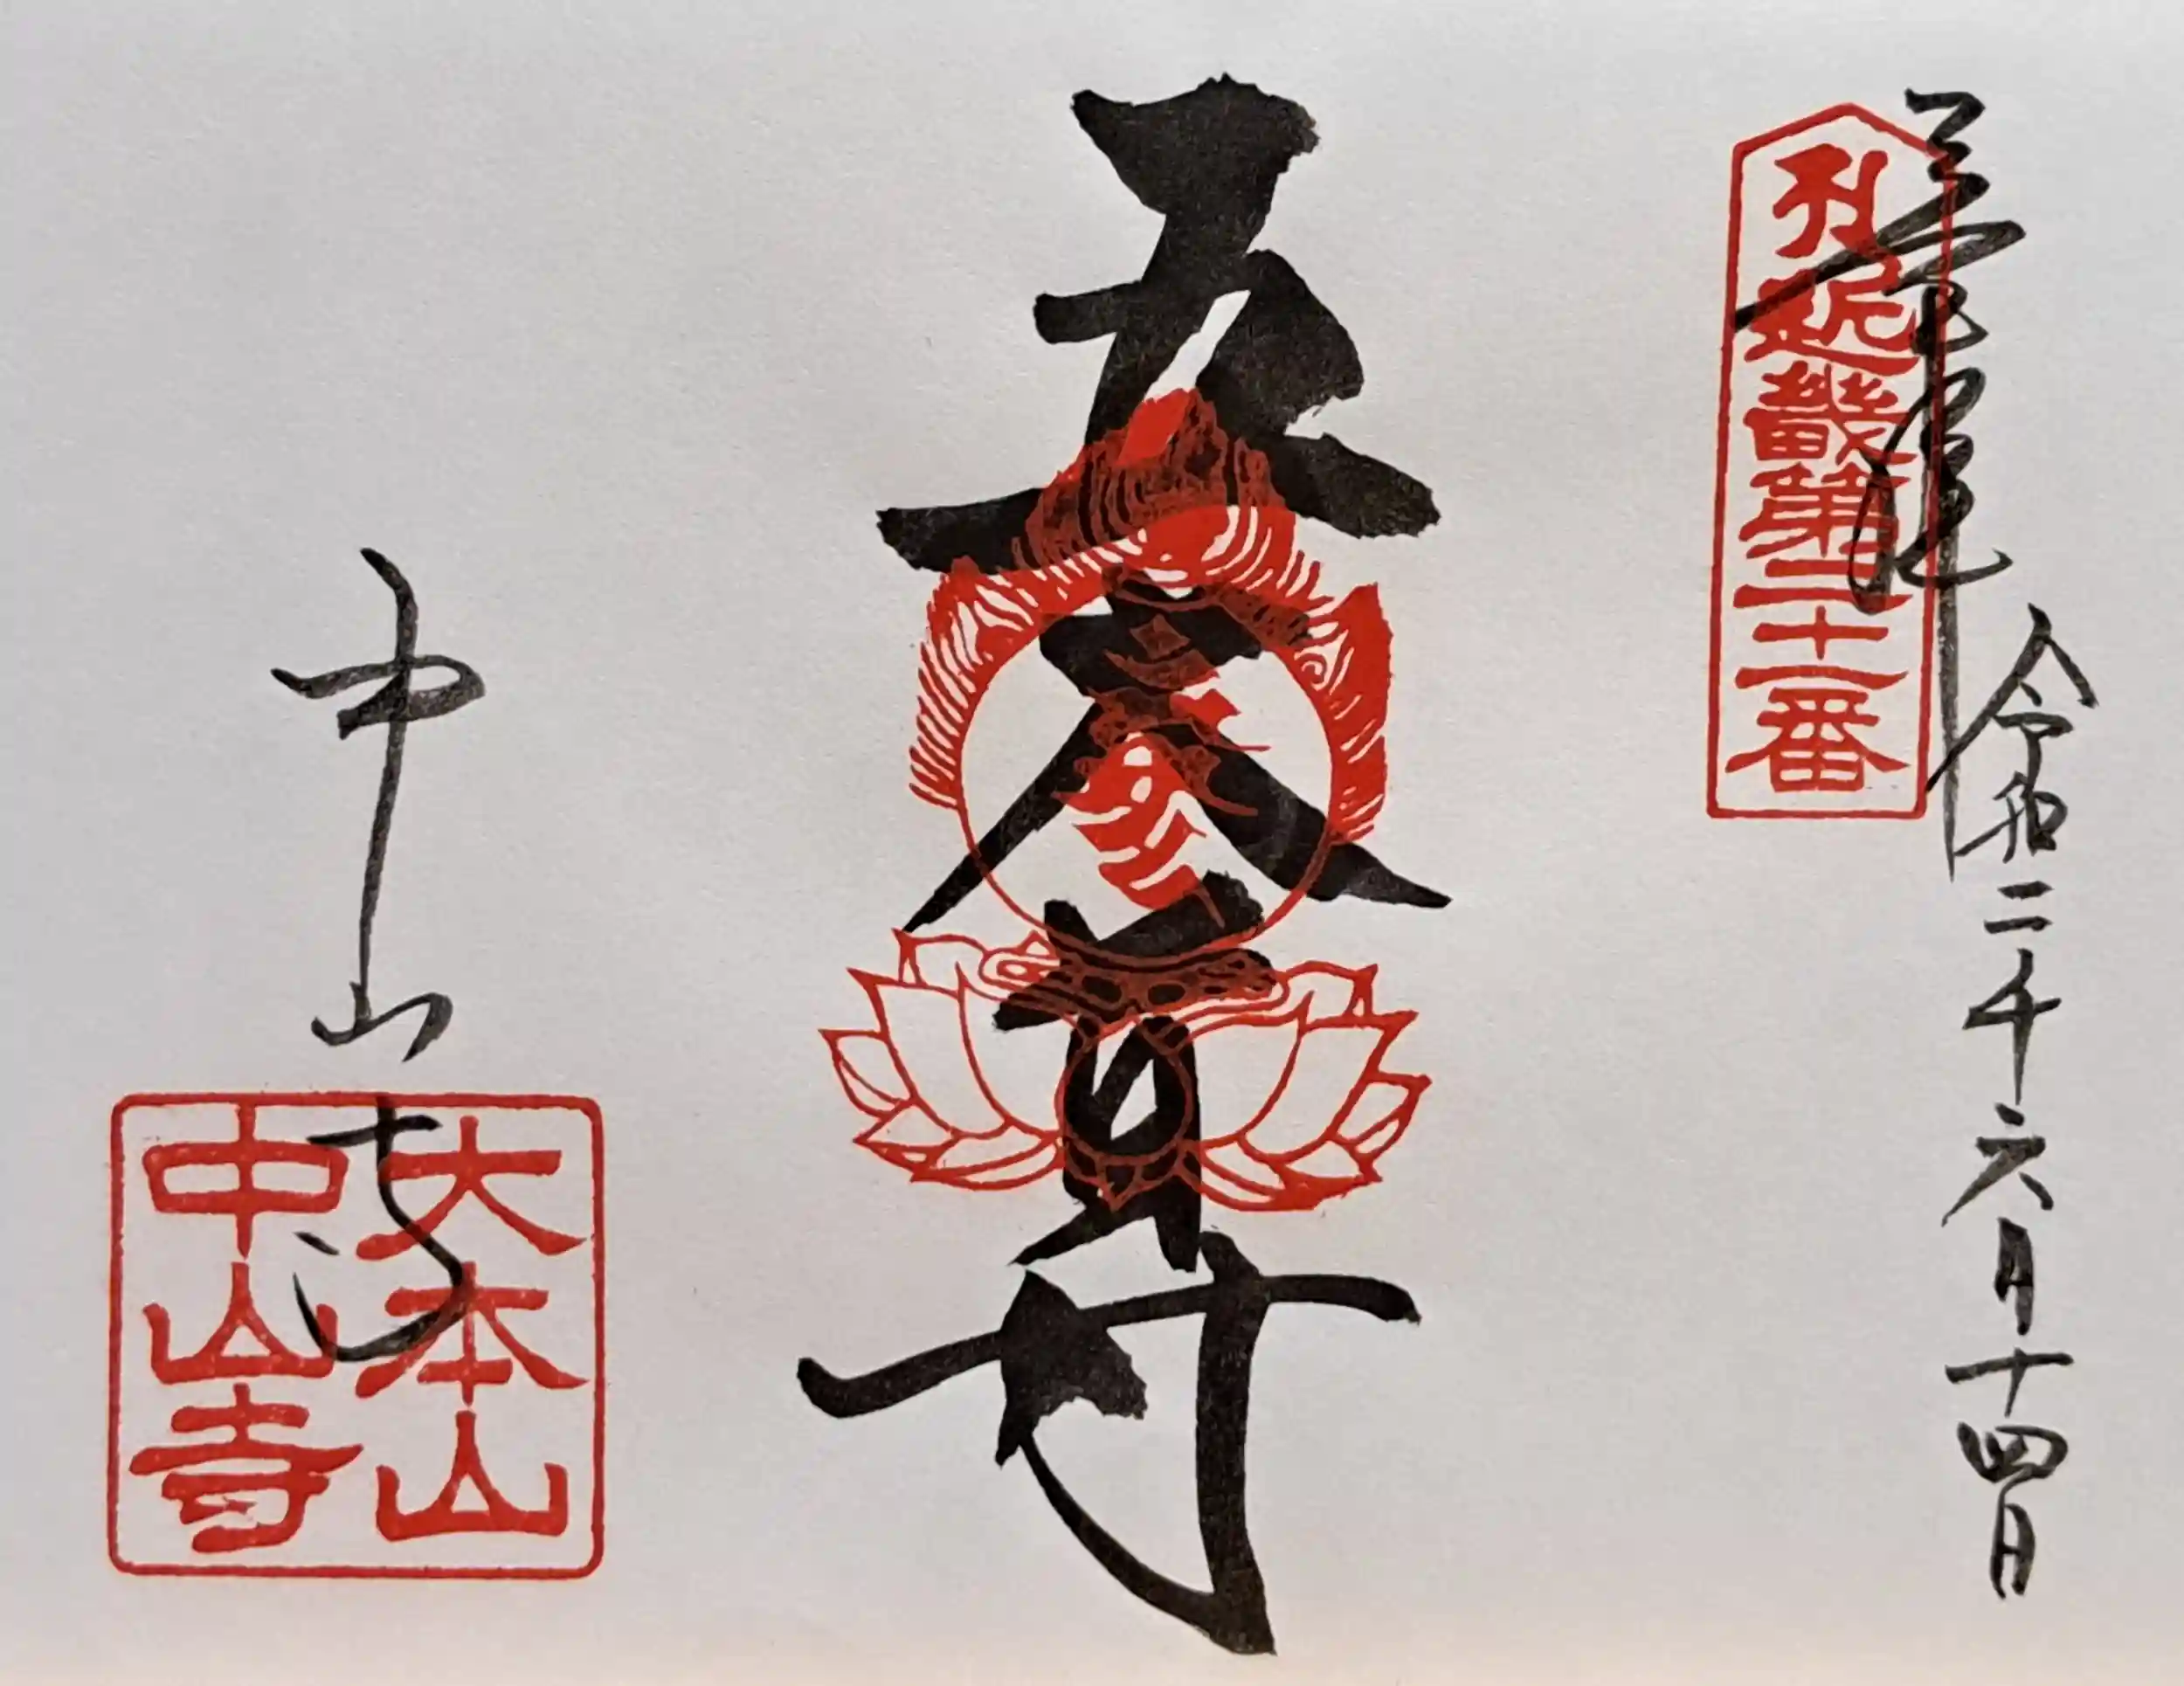 令和二年六月十四日
近畿第二十一番
五大尊
中山寺
大本山
中山寺